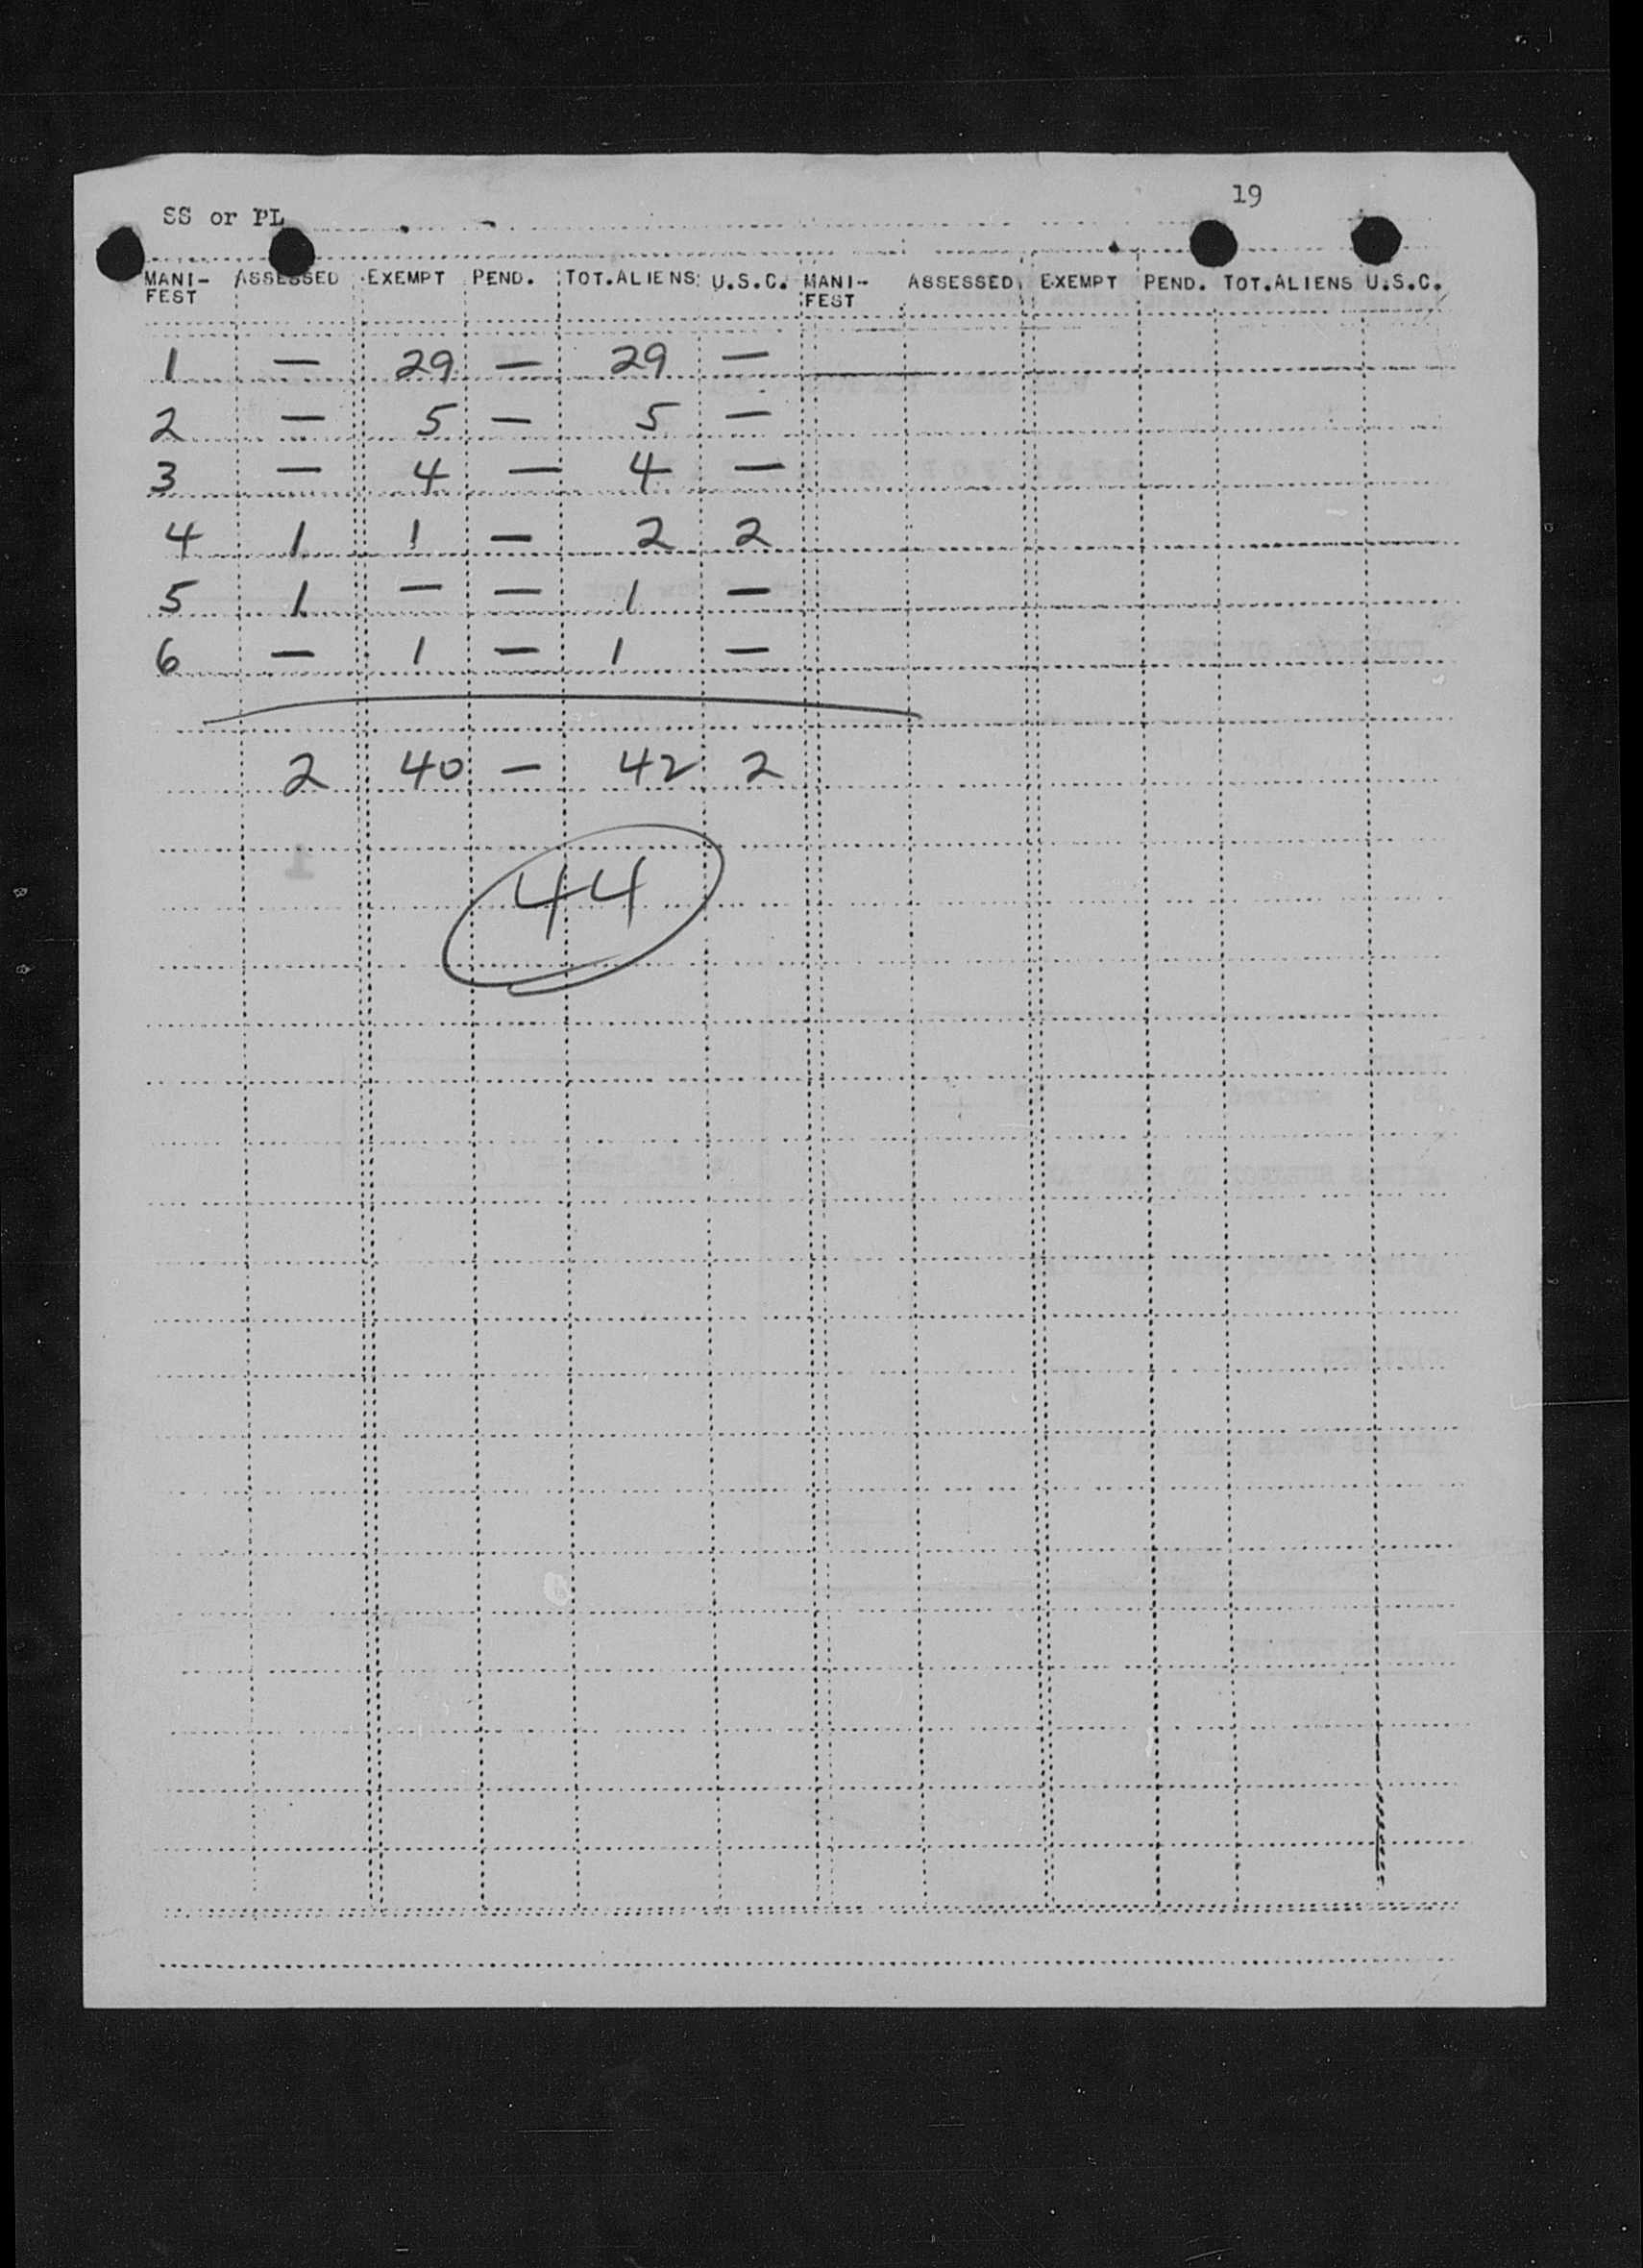 19
SS or PL
MANI-FEST ASSESSED EXEMPT PEND. TOT.ALIENS U.S.C. MANI-FEST ASSESSED EXEMPT PEND. TOT.ALIENS U.S.C.
1 — 29 — 29 —
2 — 5 — 5 —
3 — 4 — 4 —
4 1 1 — 2 2
5 1 — — 1 —
6 — 1 — 1 —
2 40 — 42 2
44